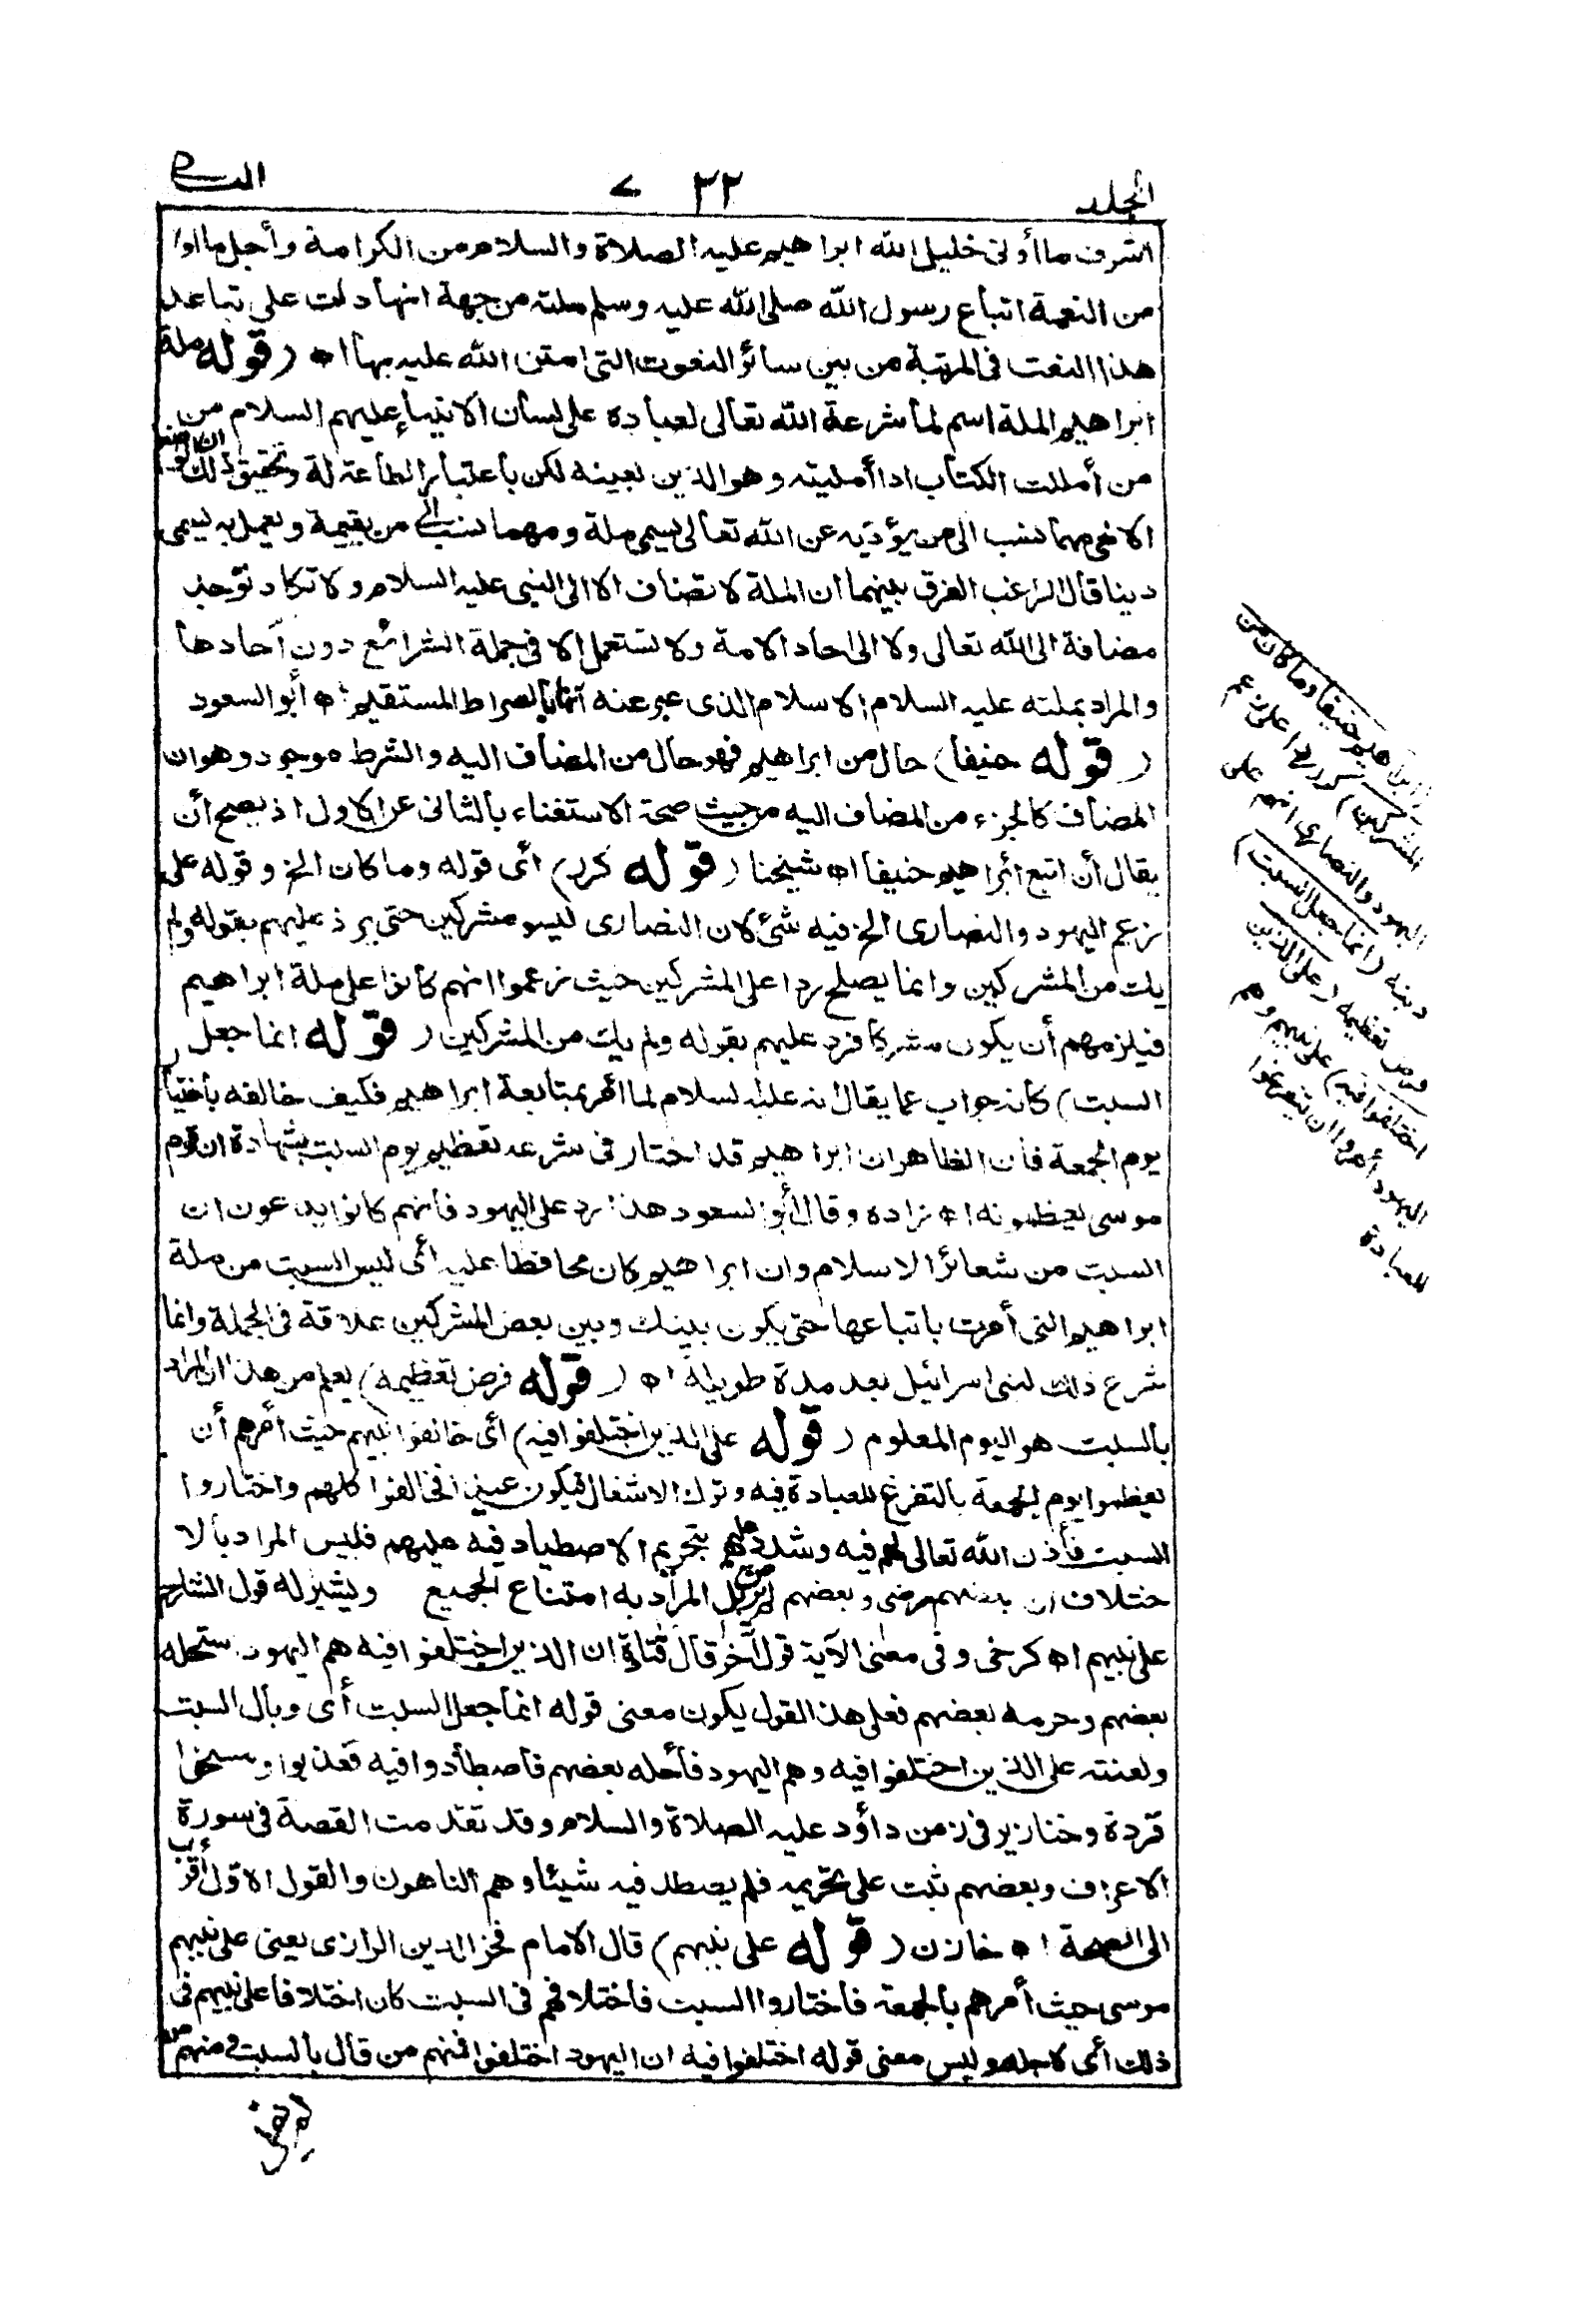 المجلد ٢٢ ٧
أشرف ما أوتى خليل الله ابراهيم عليه الصلاة والسلام من الكرامة وأجل ما اوا
من النعمة اتباع رسول الله صلى الله عليه وسلم ملته من جهة انها دلت على تباعد
هذا النعت فى المرتبة من بين سائر النعوت التى امتن الله عليه بها اه ( قوله ملة
ابراهيم الملة اسم لما شرعة الله تعالى لعباده على لسان الانبياء عليهم السلام من
من أمللت الكتاب اذا أمليته وهو الدين بعينه لكن باعتبار الطاعة له وتحقيق ذلك ان الوضع
الالهى مهما نسب الى من يؤديه عن الله تعالى يسمى ملة ومهما نسب الى من يقيمة ويعمل به يسمى
دينا قال الراغب الفرق بينهما ان الملة لا تضاف الا الى النبى عليه السلام ولا تكاد توجد
مضافة الى الله تعالى ولا الى احاد الامة ولا تستعمل الا فى جملة الشرائع دون آحادها
والمراد بملته عليه السلام الاسلام الذى عبر عنه آنفا بالصراط المستقيم اه أبو السعود
( قوله حنيفا) حال من ابراهيم فهو حال من المضاف اليه والشرط موجود وهو ان
المضاف كالجزء من المضاف اليه من حيث صحة الاستغناء بالثانى عن الاول اذ يصح أن
يقال أن اتبع ابراهيم حنيفا اه شيخنا ( قوله كرر) أى قوله وما كان الخ وقوله على
زعم اليهود والنصارى الخ فيه شئ لان النصارى ليسو مشركين حتى يرد عليهم بقوله ولم
يك من المشركين وانما يصلح ردا على المشركين حيث زعموا انهم كانوا على ملة ابراهيم
فيلزمهم أن يكون مشركا فرد عليهم بقوله ولم يك من المشركين ( قوله انما جعل
السبت) كانه جواب عما يقال انه عليه السلام لما أمر بمتابعة ابراهيم فكيف خالفه باختيار
يوم الجمعة فان الظاهر ان ابراهيم قد اختار فى شرعه تعظيم يوم السبت بشهادة ان قوم
موسى يعظمونه اه زاده وقال أبو السعود هذا رد على اليهود فانهم كانوا يدعون ان
السبت من شعائر الاسلام وان ابراهيم كان محافظا عليه أى ليس السبت من ملة
ابراهيم التى أمرت باتباعها حتى يكون بينك وبين بعض المشركين علاقة فى الجملة وانما
شرع ذلك لبنى اسرائيل بعد مدة طويلة اه ( قوله فرض تعظيمه) يعلم من هذا ان المراد
بالسبت هو اليوم المعلوم ( قوله على الذين اختلفوا فيه) أى خالفوا نبيهم حيث أمرهم أن
يعظموا يوم الجمعة بالتفرغ للعبادة فيه وترك الاشغال فيكون عيدا فخالفوا كلهم واختاروا
السبت فأذن الله تعالى لهم فيه وشدد عليهم بتحريم الاصطياد فيه عليهم فليس المراد بالا
ختلاف ان بعضهم رضى وبعضهم لم يرض بل المراد به امتناع الجميع ويشير له قول الشارح
على نبيهم اه كرخى وفى معنى الآية قول آخر قال قتادة ان الذين اختلفوا فيه هم اليهود ستحله
بعضهم وحرمه بعضهم فعلى هذا القول يكون معنى قوله انما جعل السبت أى وبال السبت
ولعنته على الذين اختلفوا فيه وهم اليهود فأحله بعضهم فاصطادوا فيه فعذبوا ومسخوا
قردة وخنازير فى زمن داؤد عليه الصلاة والسلام وقد تقدمت القصة فى سورة
الاعراف وبعضهم ثبت على تحريمه فلم يصطد فيه شيئا وهم الناهون والقول الاول أقرب
الى الصحة اه خازن ( قوله على نبيهم) قال الامام فخر الدين الرازى يعنى على نبيهم
موسى حيث أمرهم بالجمعة فاختاروا السبت فاختلافهم فى السبت كان اختلافا على نبيهم فى
ذلك أى لاجله وليس معنى قوله اختلفوا فيه ان اليهود اختلفوا فمنهم من قال بالسبت ومنهم من
ابراهيم حنيفا وما كان من
المشركين) كرر ردا على زعم
اليهود والنصارى انهم على
دينه (انما جعل السبت)
فرض تعظيمه (على الذين
اختلفوا فيه) على نبيهم وهم
اليهود أمروا ان يتفرغوا
للعبادة